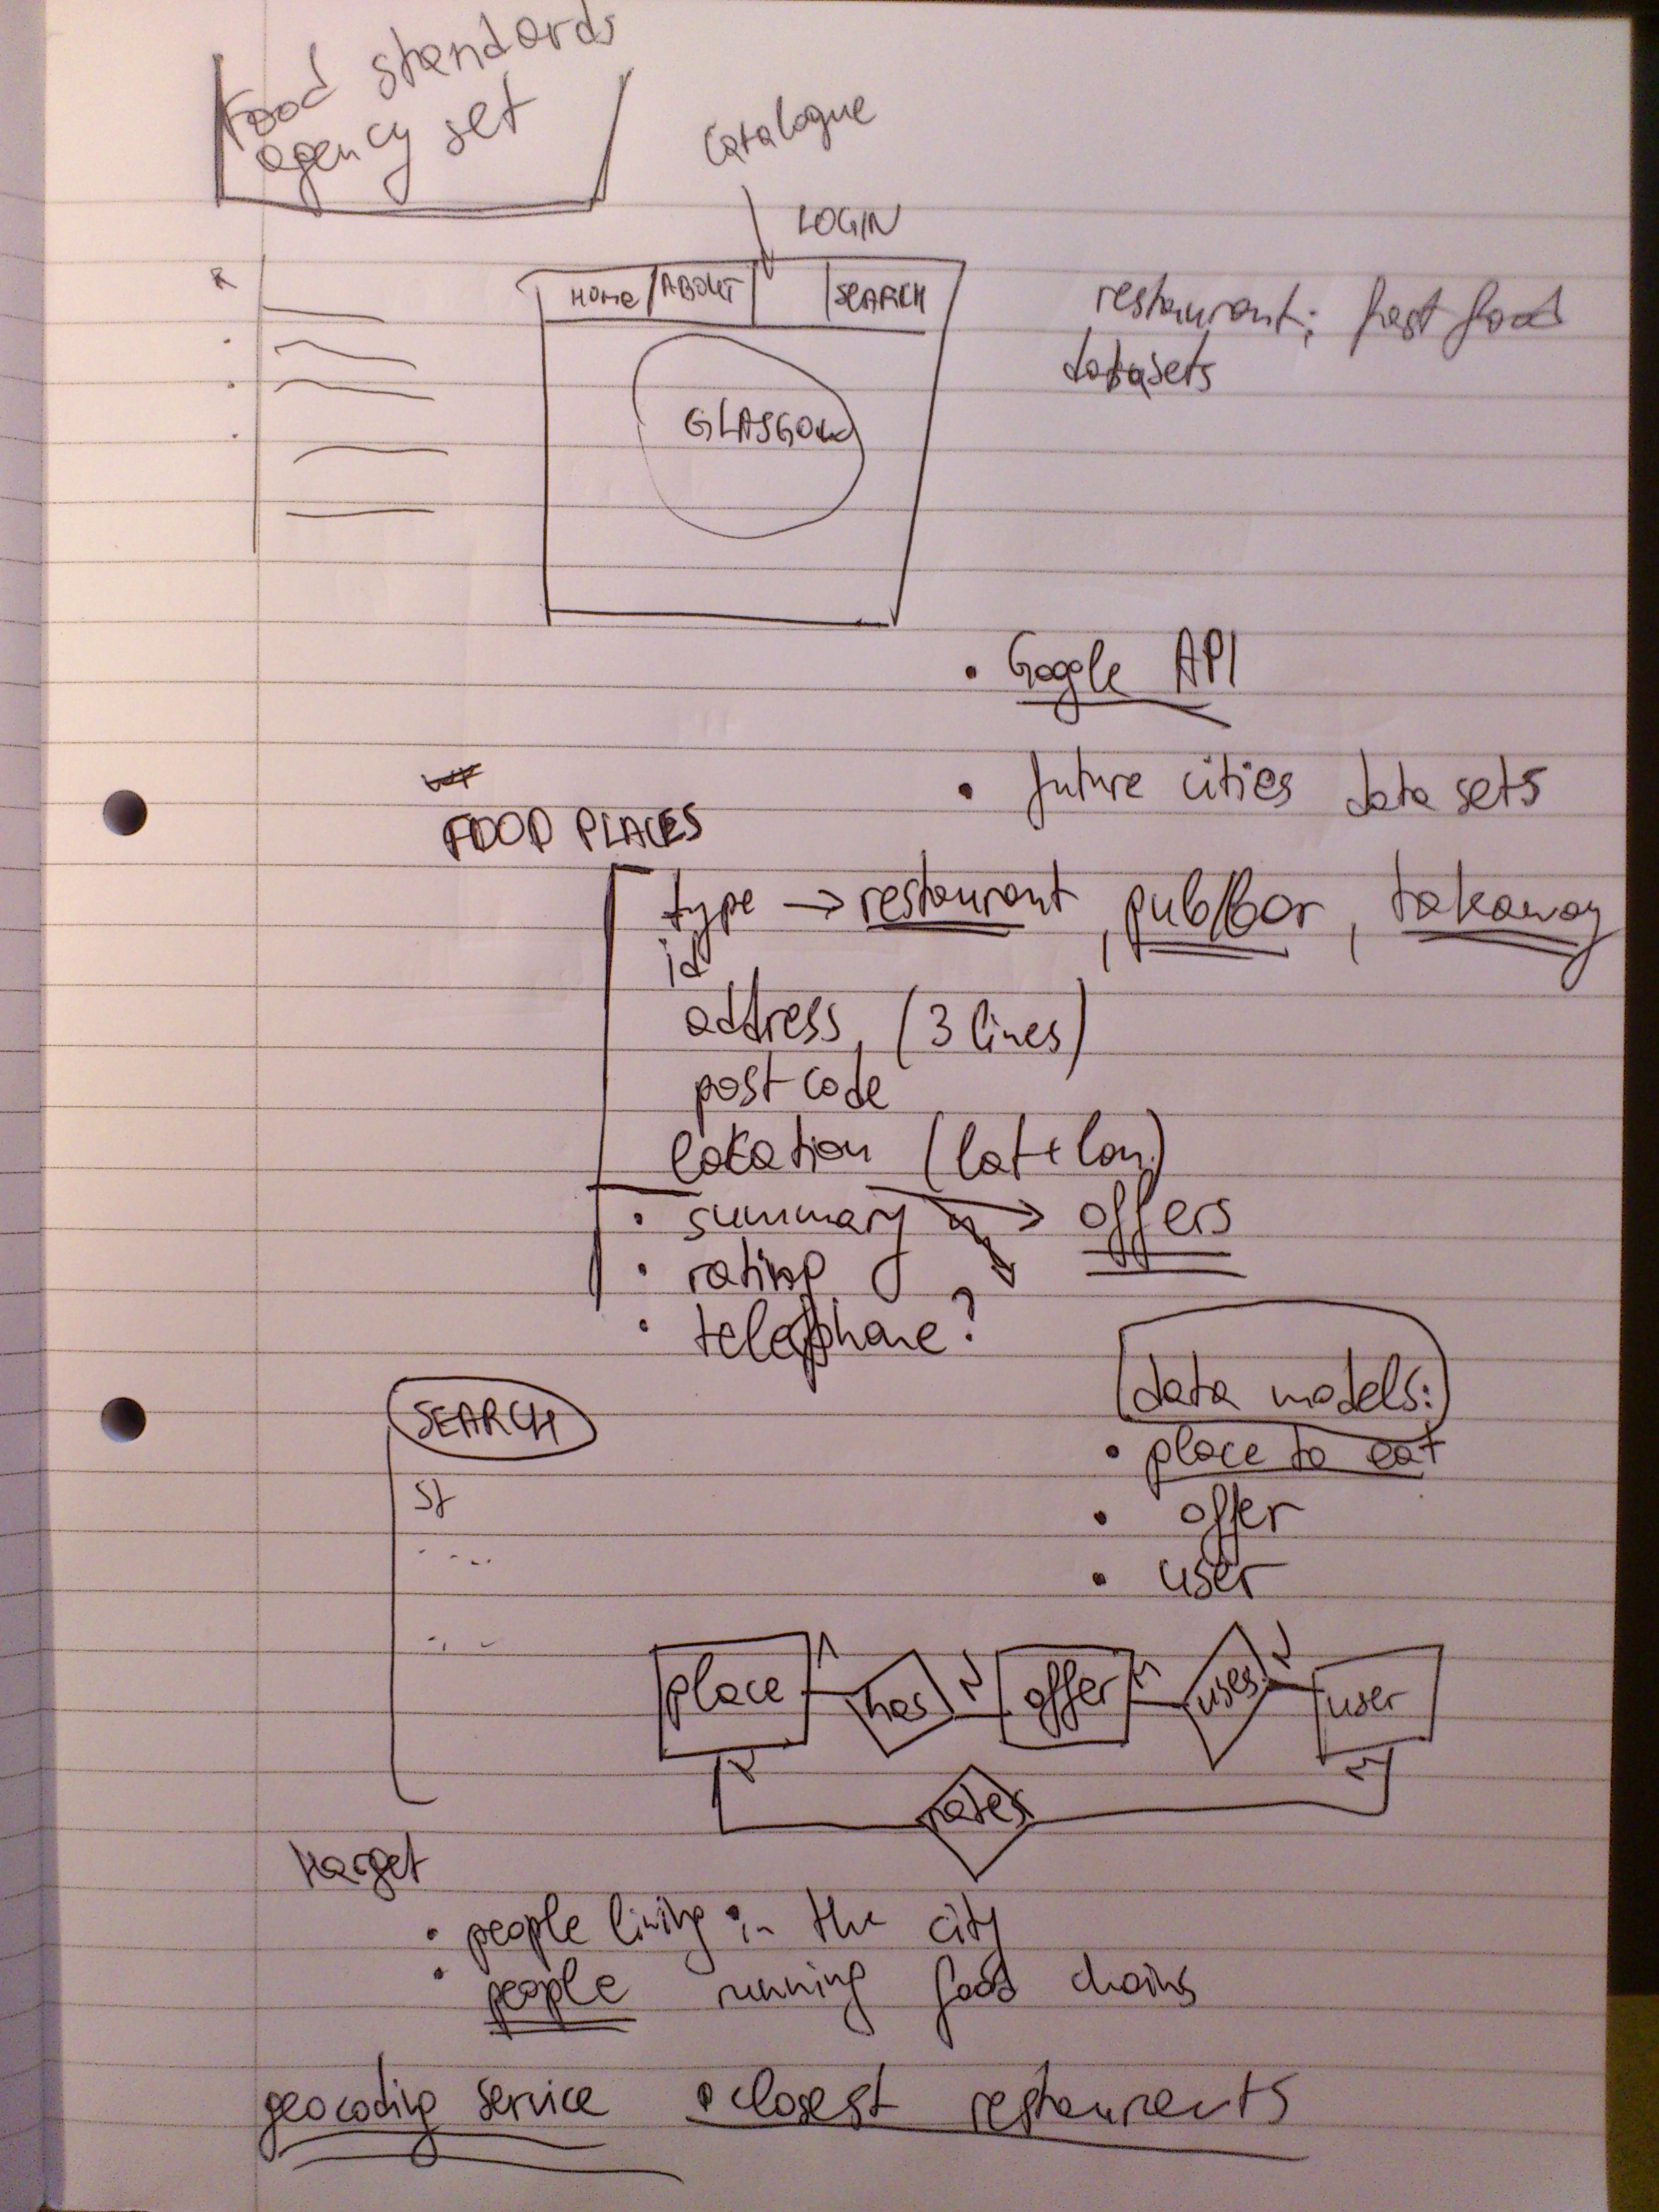 Food standards
agency set
Catalogue
LOGIN
HOME ABOUT SEARCH
GLASGOW
restaurant; fast food
datasets
• Google API
• future cities data sets
FOOD PLACES
type → restaurant, pub/bar, takeaway
id
address (3 lines)
postcode
location (lat + lon)
• summary → offers
• rating
• telephone?
SEARCH
data models:
• place to eat
• offer
• user
place 1 has N offer M uses N user
N rates M
target
• people living in the city
• people running food chains
geocoding service • closest restaurants